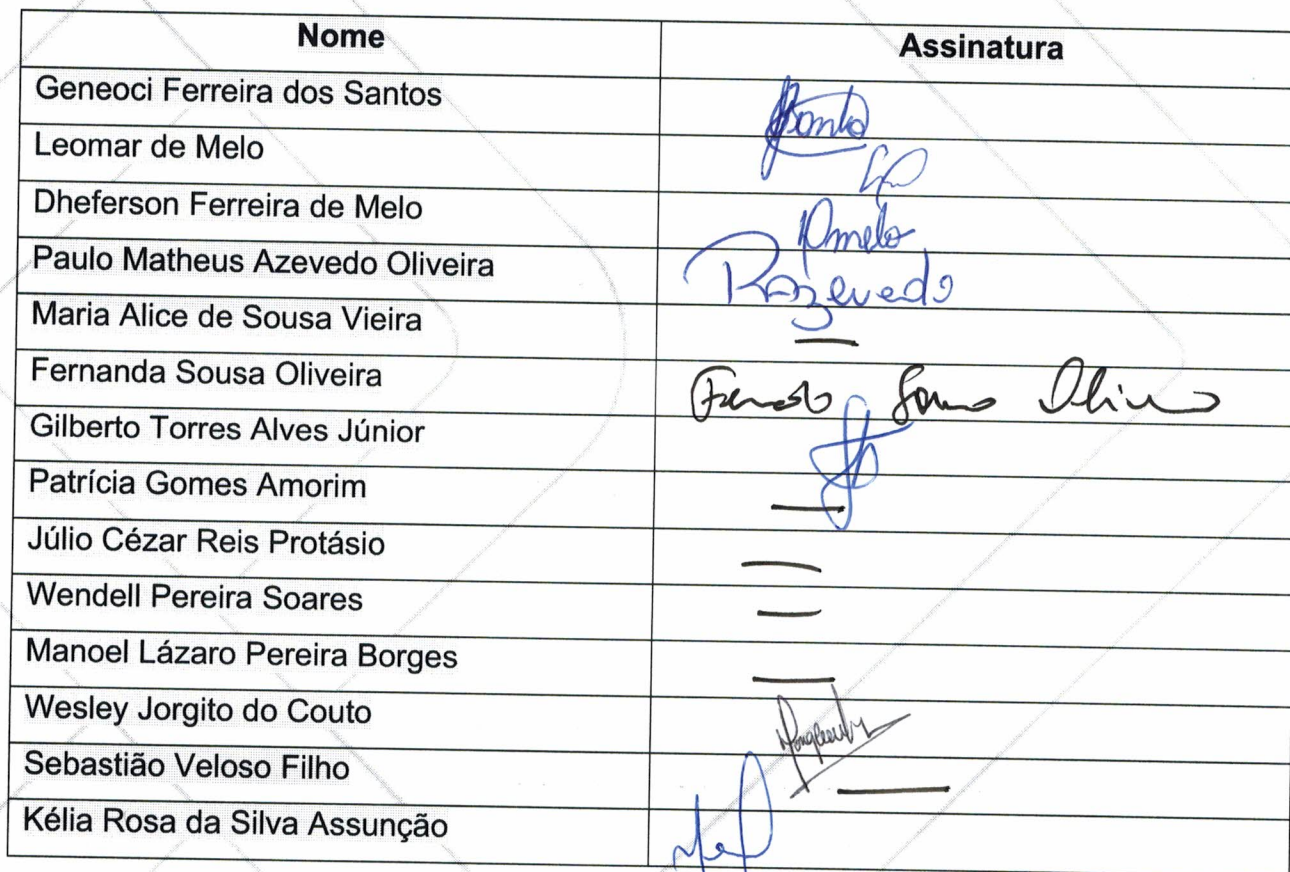 Nome Assinatura
Geneoci Ferreira dos Santos
Leomar de Melo
Dheferson Ferreira de Melo
Paulo Matheus Azevedo Oliveira Azevedo
Maria Alice de Sousa Vieira
Fernanda Sousa Oliveira
Gilberto Torres Alves Júnior
Patrícia Gomes Amorim
Júlio Cézar Reis Protásio
Wendell Pereira Soares
Manoel Lázaro Pereira Borges
Wesley Jorgito do Couto
Sebastião Veloso Filho
Kélia Rosa da Silva Assunção